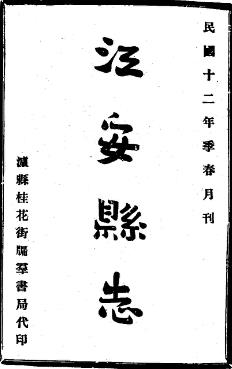 民國十二年季春月刊
江安縣志
瀘縣桂花街屬羣書局代印